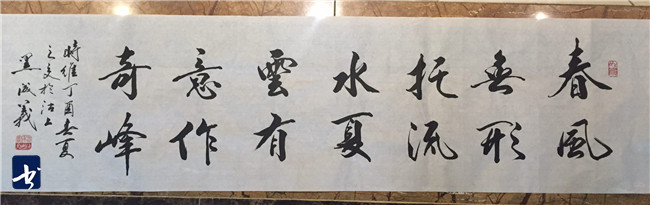 春風
無形
托流
水夏
雲有
意作
奇峰
時維丁酉春夏
之交於沽上
成義